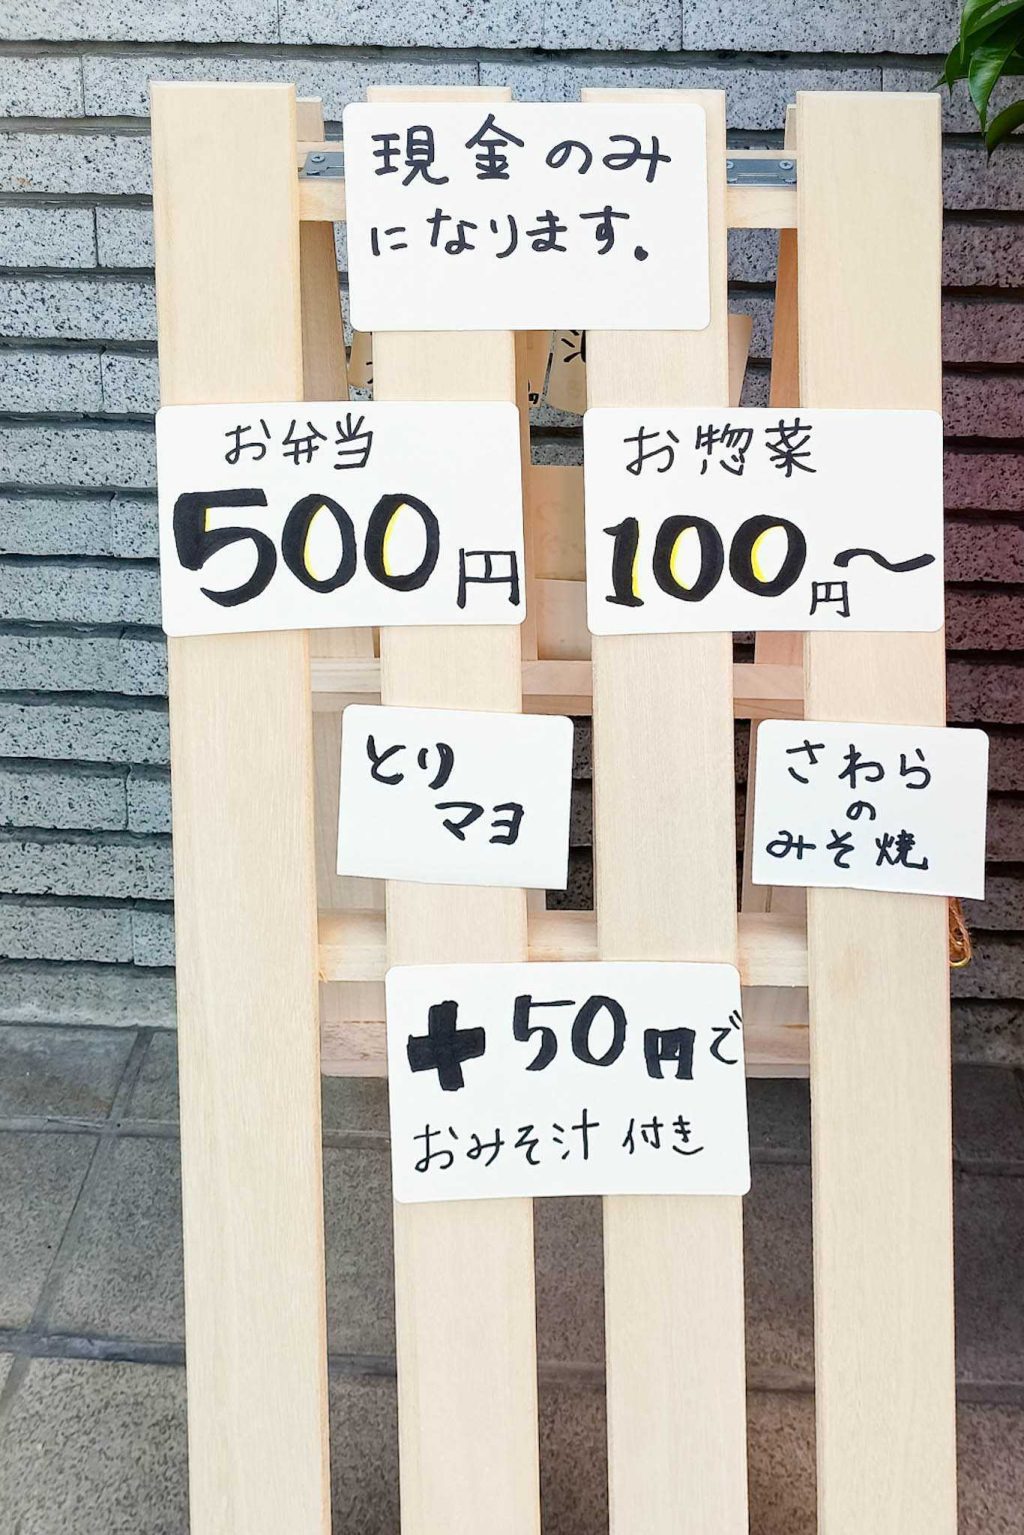 現金のみ
になります。
お弁当
500円
お惣菜
100円〜
とり
マヨ
さわら
の
みそ焼
+50円で
おみそ汁付き